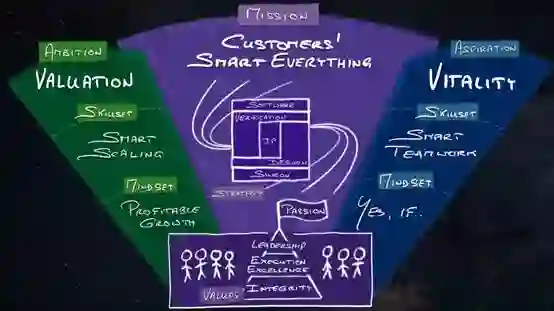 MISSION
CUSTOMERS'
SMART EVERYTHING
AMBITION
VALUATION
SKILLSET
SMART
SCALING
MINDSET
PROFITABLE
GROWTH
SOFTWARE
VERIFICATION
IP
DESIGN
SILICON
STRATEGY
ASPIRATION
VITALITY
SKILLSET
SMART
TEAMWORK
MINDSET
YES, IF..
PASSION
LEADERSHIP
EXECUTION
EXCELLENCE
INTEGRITY
VALUES